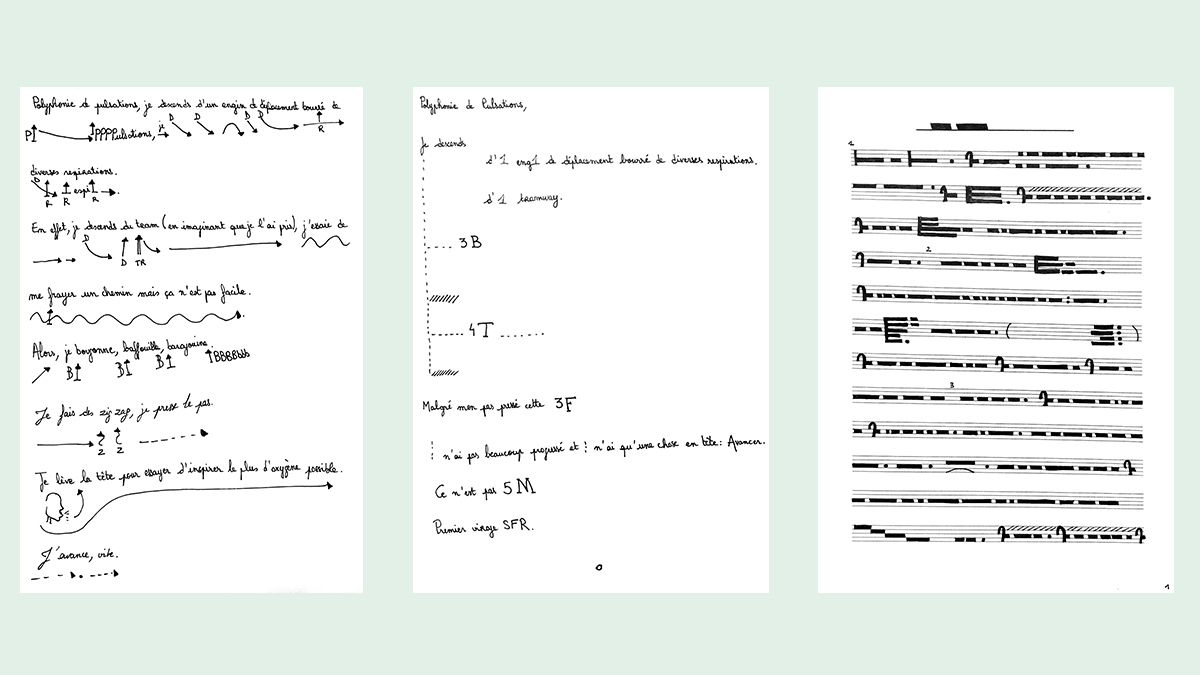 Polyphonie de pulsations, je descends d'un engin de déplacement bourré de
P PPPPulsations, je D D D D R
diverses respirations.
D R R espi R .
En effet, je descends du tram (en imaginant que je l'ai pris), j'essaie de
D D TR
me frayer un chemin mais ça n'est pas facile.
Alors, je bougonne, baffouille, baragouine.
B B B BBBBbbb
Je fais des zig zag, je presse le pas.
Z Z
Je lève la tête pour essayer d'inspirer le plus d'oxygène possible.
J'avance, vite.
Polyphonie de Pulsations,
Je descends
d'1 eng1 de déplacement bourré de diverses respirations.
d'1 tramway.
3B
4T
Malgré mon pas pressé cette 3F
n'ai pas beaucoup progressé et n'ai qu'une chose en tête: Avancer.
Ce n'est pas 5M
Premier virage SFR.
0
1
2
3
1